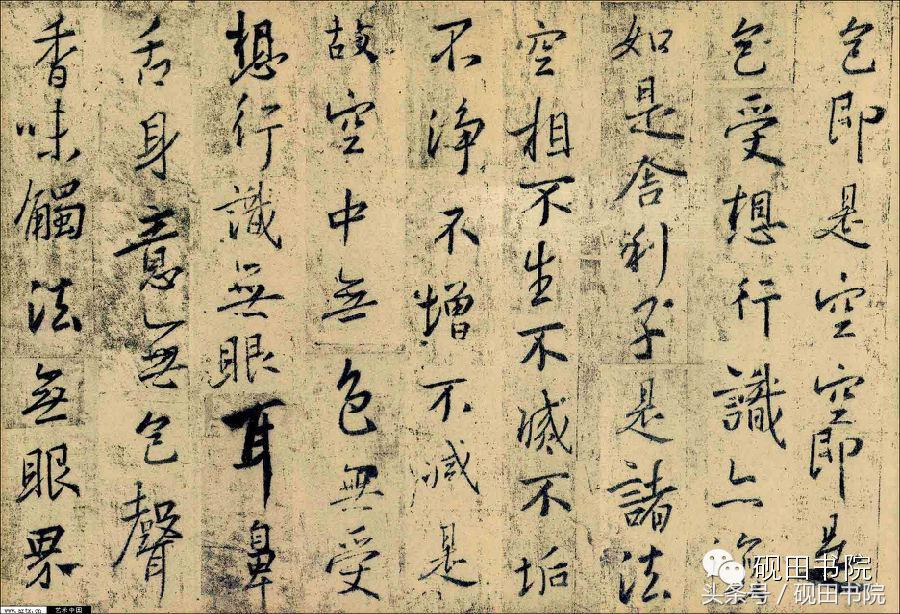 色即是空空即是
色受想行識亦復
如是舍利子是諸法
空相不生不滅不垢
不淨不增不減是
故空中無色無受
想行識無眼耳鼻
舌身意無色聲
香味觸法無眼界
砚田书院
头条号/砚田书院
艺术中国